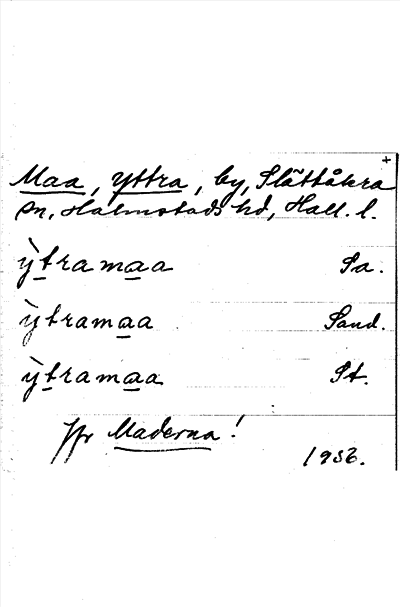 +
Maa, yttra, by, Slättåkra
sn, Halmstads hd, Hall. l.
ỳtramaa Sa.
ỳtramaa Sand.
ỳtramaa St.
Jfr Maderna!